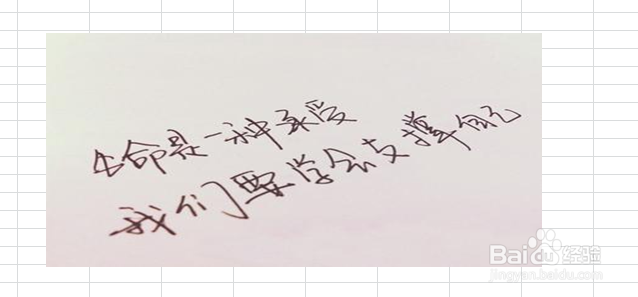 生命是一种承受
我们要学会支撑自己
Baidu经验
jingyan.baidu.com